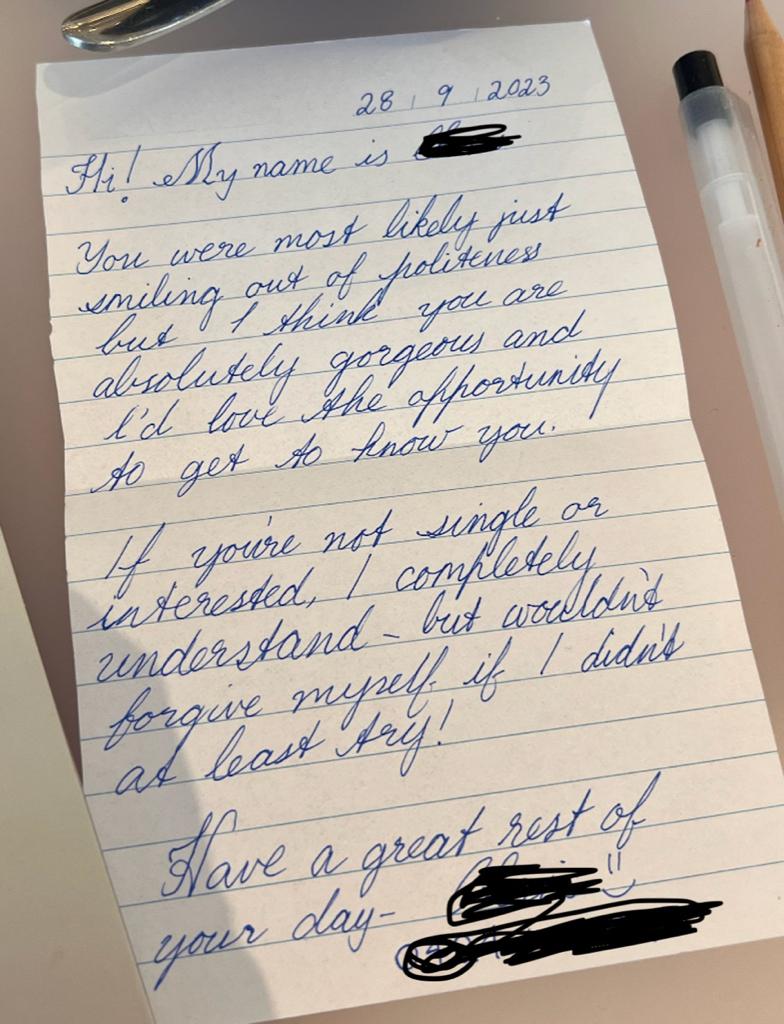 28 | 9 | 2023
Hi! My name is
You were most likely just
smiling out of politeness
but I think you are
absolutely gorgeous and
I'd love the opportunity
to get to know you.
If you're not single or
interested, I completely
understand - but wouldn't
forgive myself if I didn't
at least try!
Have a great rest of
your day-